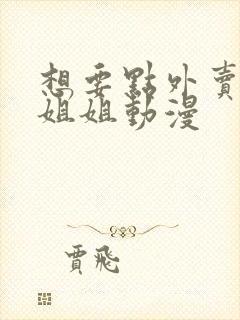 想要點外賣
姐姐動漫
賈飛